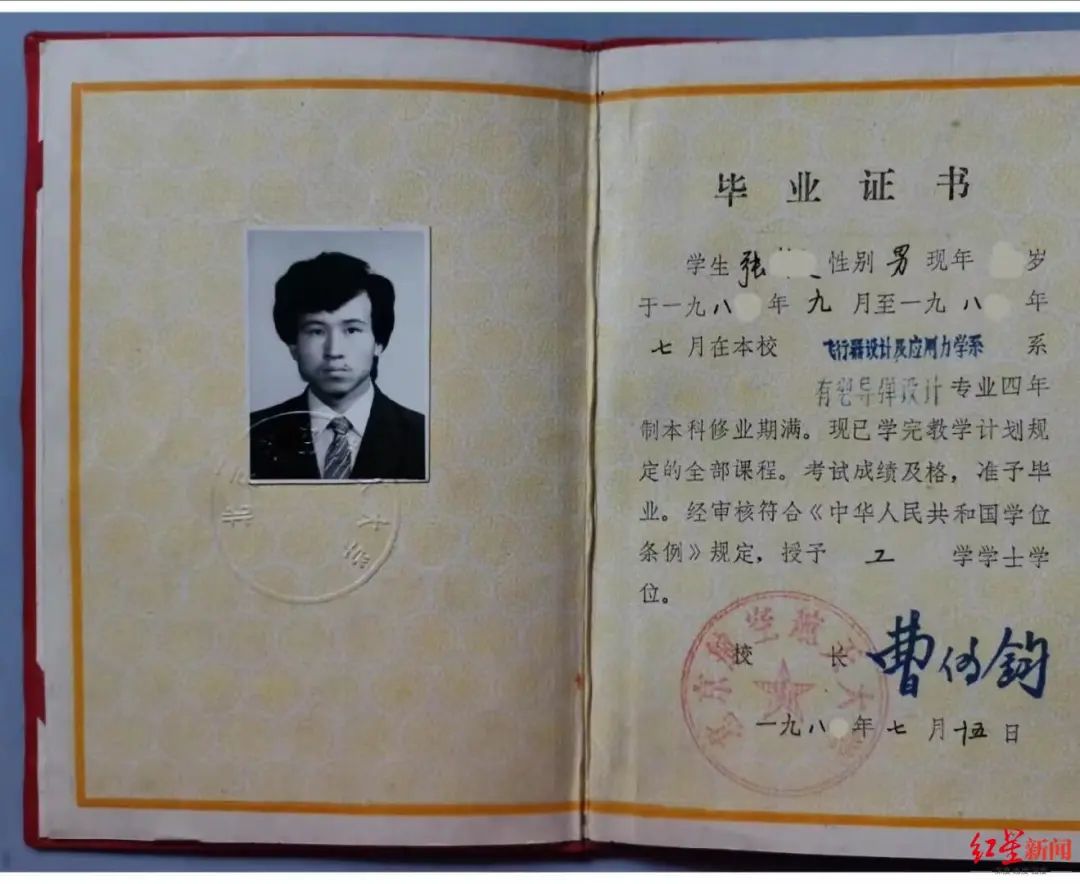 毕业证书
学生 张 性别 男 现年 岁
于一九八 年 九 月至一九八 年
七 月在本校 飞行器设计及应用力学系 系
有翼导弹设计 专业四年
制本科修业期满。现已学完教学计划规
定的全部课程。考试成绩及格，准予毕
业。经审核符合《中华人民共和国学位
条例》规定，授予 工 学学士学
位。
北京航空航天大学
校 长 曹传钧
一九八 年 七 月 十五 日
红星新闻